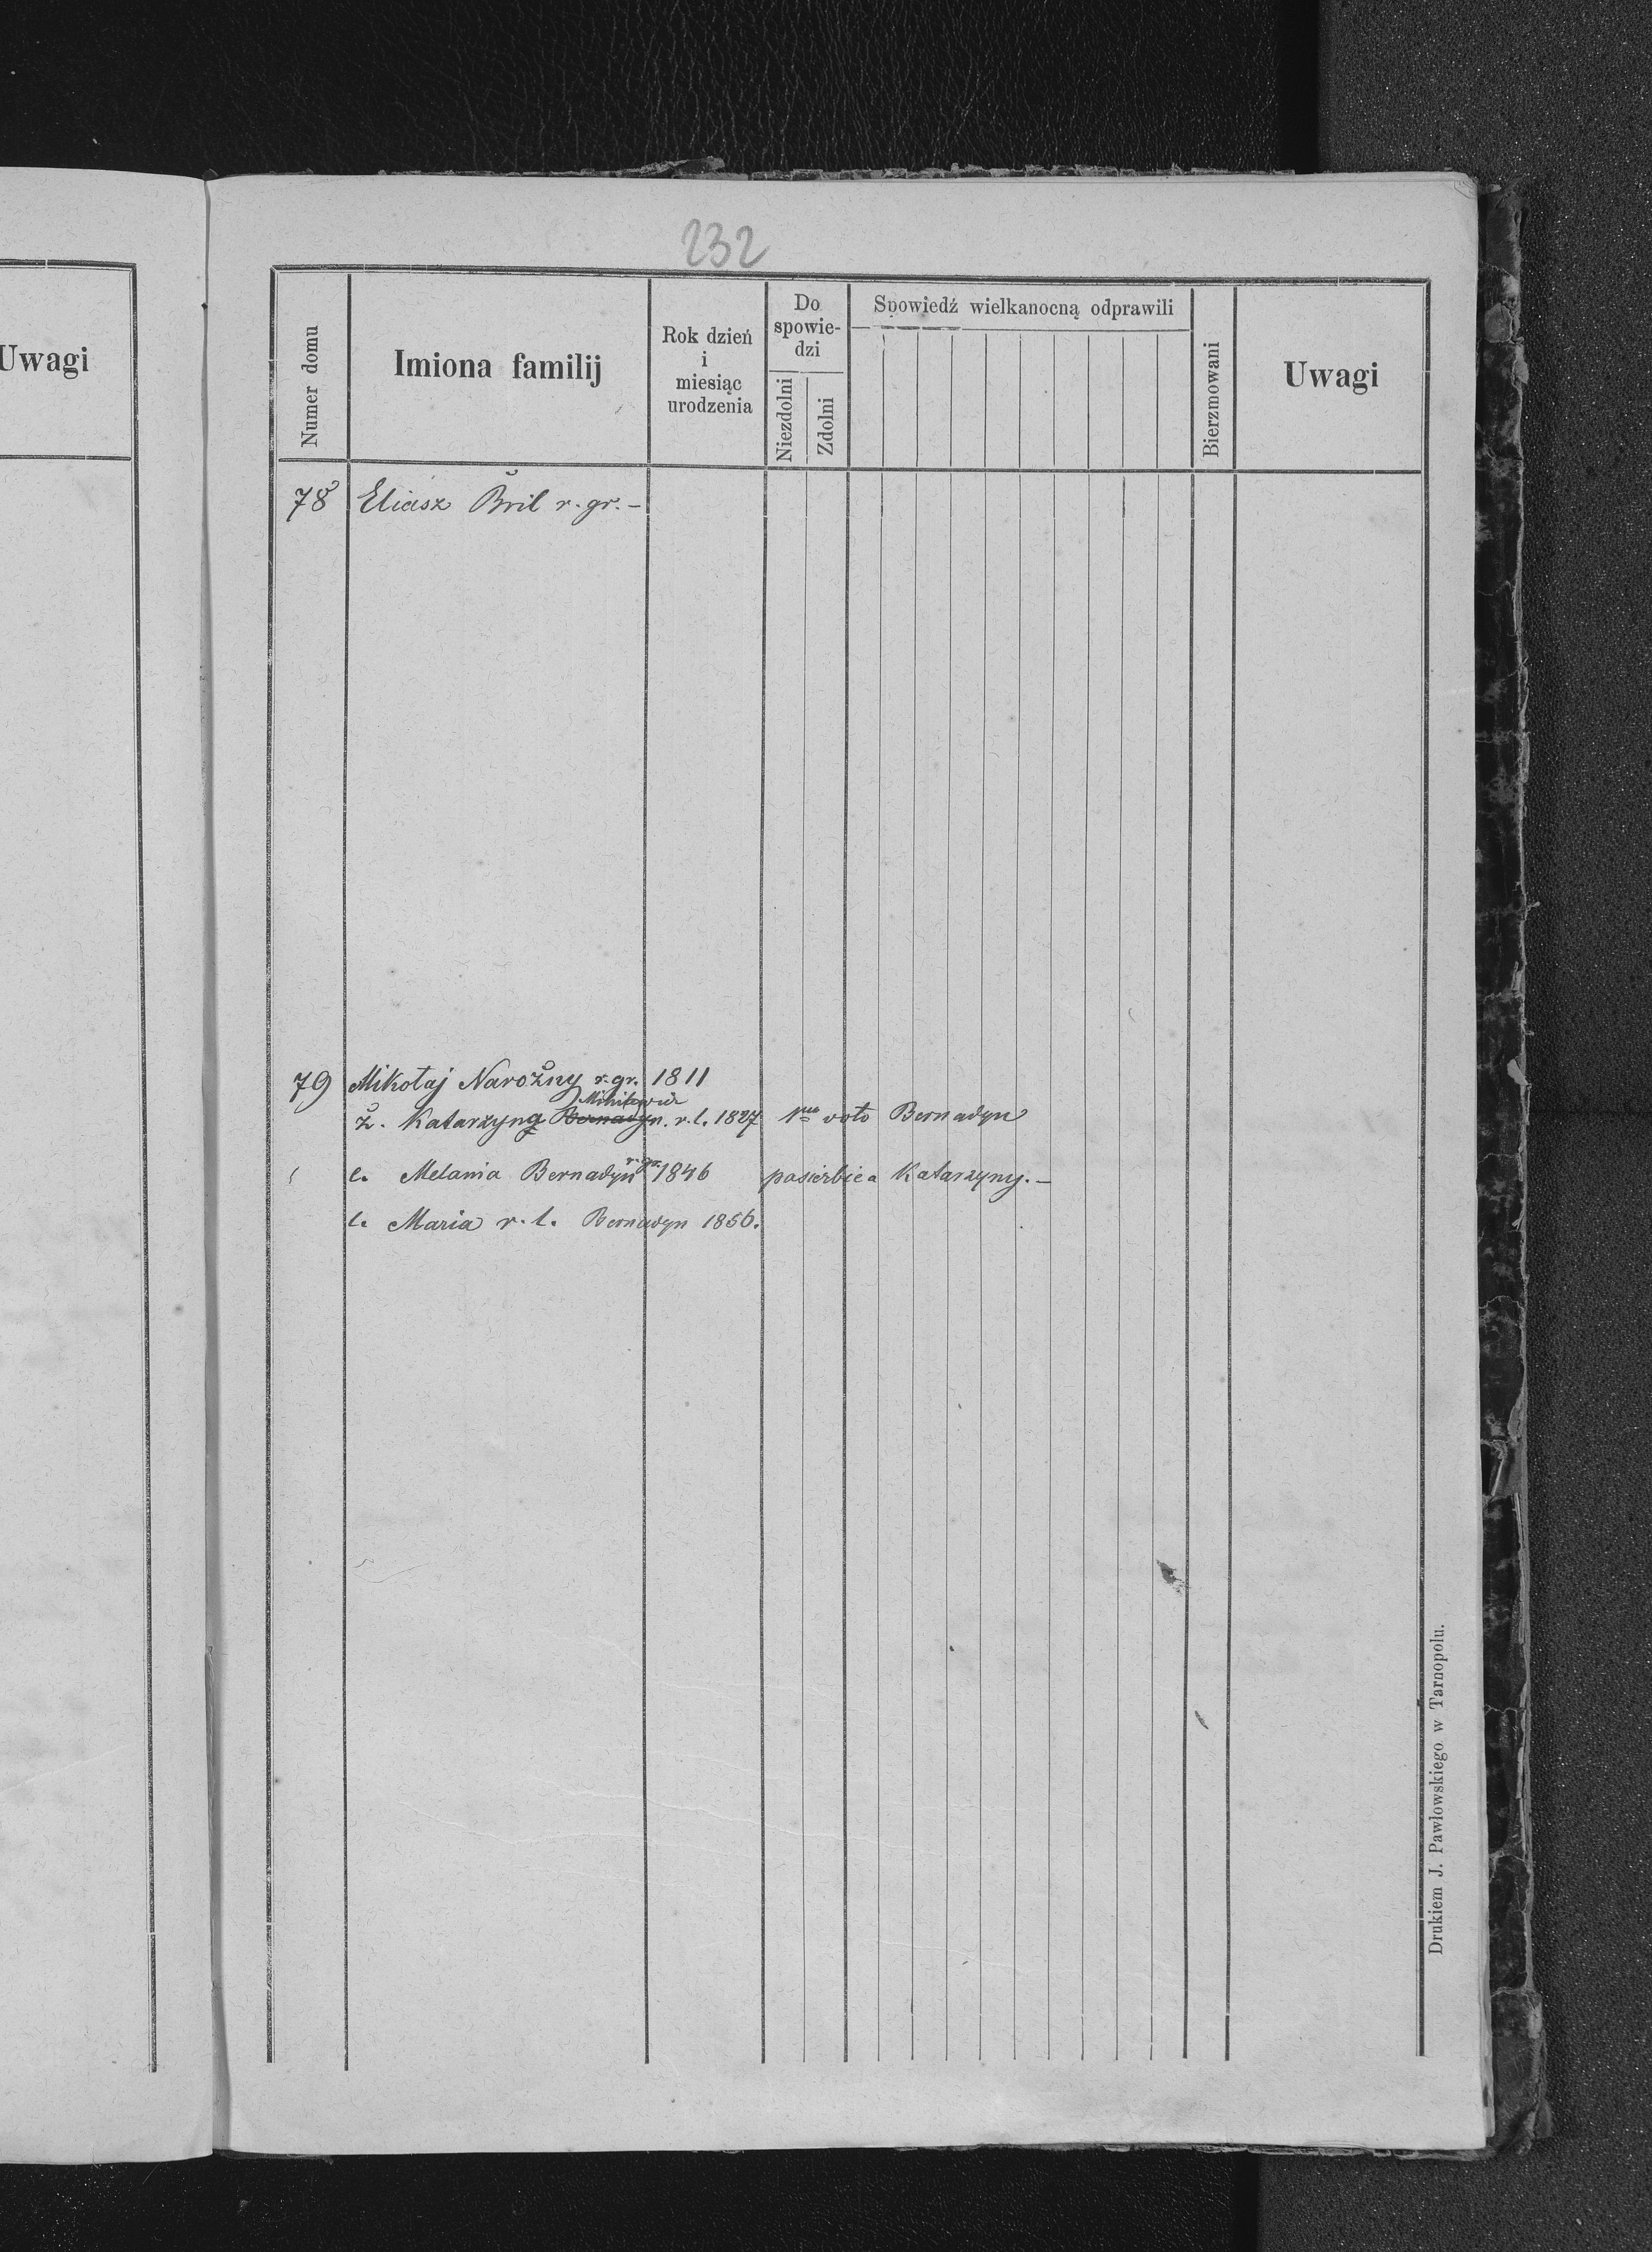 232
Uwagi
Numer domu
Imiona familij
Rok dzień
i
miesiąc
urodzenia
Do
spowie-
dzi
Niezdolni
Zdolni
Spowiedź wielkanocną odprawili
Bierzmowani
Uwagi
78 Eliasz Bril r. gr. –
79 Mikołaj Narożny r. gr. 1811
ż. Katarzyna Bernadyn r. l. 1827 1mo voto Bernadyn
c. Melania Bernadyn r. gr. 1846 pasierbica Katarzyny. –
c. Maria r. l. Bernadyn 1856.
Drukiem J. Pawłowskiego w Tarnopolu.